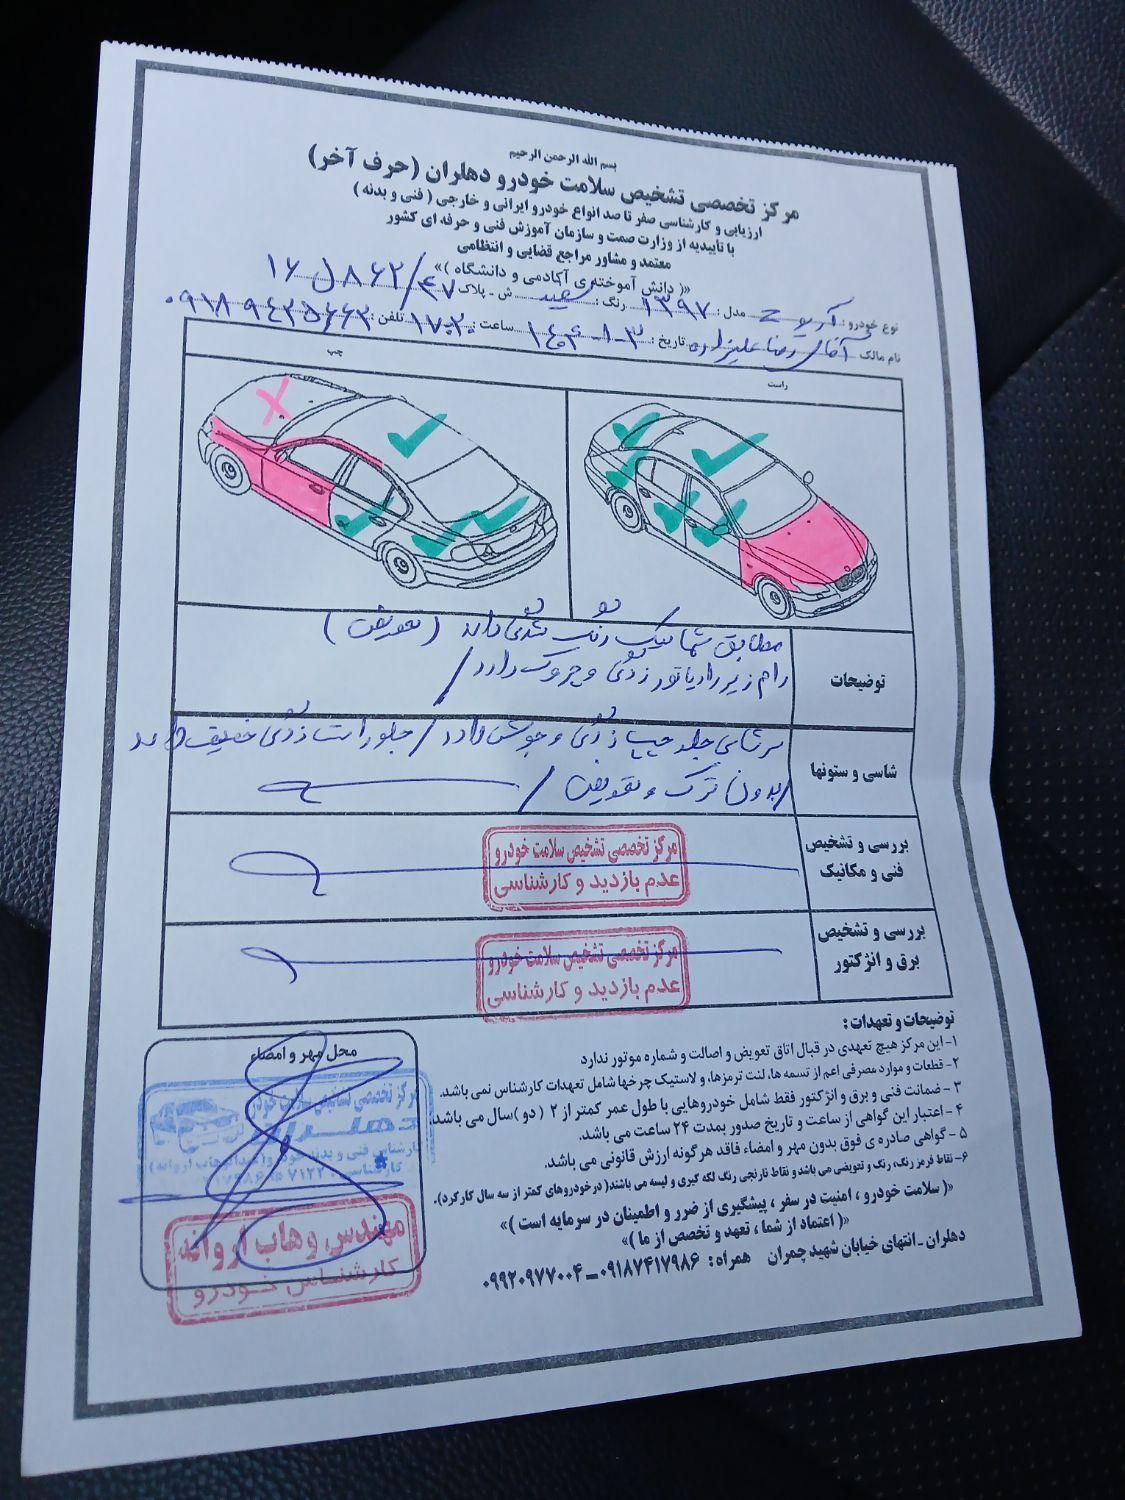 بسم الله الرحمن الرحیم
مرکز تخصصی تشخیص سلامت خودرو دهلران (حرف آخر)
ارزیابی و کارشناسی صفر تا صد انواع خودرو ایرانی و خارجی ( فنی و بدنه )
با تاییدیه از وزارت صمت و سازمان آموزش فنی و حرفه ای کشور
معتمد و مشاور مراجع قضایی و انتظامی
«( دانش آموخته ی آکادمی و دانشگاه )»
نوع خودرو: آریو Z مدل: ۱۳۹۷ رنگ: سفید ش - پلاک ۴۷/۸۶۲ ل ۱۶
نام مالک آقای رضا علیزاده تاریخ: ۱۴۰۴-۸-۳ ساعت: ۱۷:۲۰ تلفن: ۰۹۱۸۹۴۲۵۶۶۳
راست
چپ
توضیحات
مطابق شماتیک رنگ شدگی دارد (تعویض)
رام زیر رادیاتور زدگی و چروک دارد/
شاسی و ستونها
سرشاسی جلو چپ زدگی و جوش دارد/ جلو راست زدگی خفیف دارد
/بدون ترک و تعویض/
بررسی و تشخیص
فنی و مکانیک
مرکز تخصصی تشخیص سلامت خودرو
عدم بازدید و کارشناسی
بررسی و تشخیص
برق و انژکتور
مرکز تخصصی تشخیص سلامت خودرو
عدم بازدید و کارشناسی
توضیحات و تعهدات:
۱- این مرکز هیچ تعهدی در قبال اتاق تعویض و اصالت و شماره موتور ندارد
۲- قطعات و موارد مصرفی اعم از تسمه ها، لنت ترمزها، و لاستیک چرخها شامل تعهدات کارشناس نمی باشد.
۳ - ضمانت فنی و برق و انژکتور فقط شامل خودروهایی با طول عمر کمتر از ۲ (دو)سال می باشد.
۴ - اعتبار این گواهی از ساعت و تاریخ صدور بمدت ۲۴ ساعت می باشد.
۵ - گواهی صادره ی فوق بدون مهر و امضاء فاقد هرگونه ارزش قانونی می باشد.
۶- نقاط قرمز رنگ، رنگ و تعویضی می باشد و نقاط نارنجی رنگ لکه گیری و لیسه می باشند( در خودروهای کمتر از سه سال کارکرد).
«( سلامت خودرو ، امنیت در سفر ، پیشگیری از ضرر و اطمینان در سرمایه است )»
«( اعتماد از شما ، تعهد و تخصص از ما )»
دهلران - انتهای خیابان شهید چمران همراه: ۰۹۱۸۷۴۱۷۹۸۶ - ۰۹۹۲۰۹۷۷۰۰۴
محل مهر و امضاء
مرکز تخصصی تشخیص سلامت خودرو
دهلران
مهندس وهاب اروانه
کارشناس خودرو